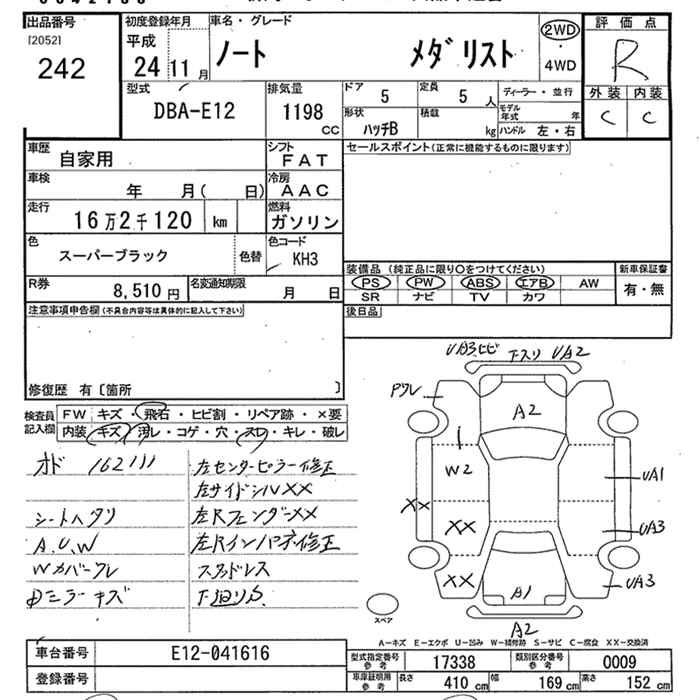 出品番号
[2052]
242
初度登録年月
平成
24 11 月
車名・グレード
ノート メダリスト
2WD
・
4WD
評価点
R
外装 内装
C C
型式
DBA-E12
排気量
1198
CC
ドア
5
定員
5 人
ディーラー・並行
形状
ハッチB
積載
kg
モデル年式 年
ハンドル 左・右
車歴
自家用
シフト
FAT
セールスポイント(正常に機能するものに限ります)
車検
年 月( 日)
冷房
AAC
走行
16万2千120 km
燃料
ガソリン
色
スーパーブラック
色替
色コード
KH3
R券
8,510 円
名変通知期限
月 日
装備品 (純正品に限り○をつけてください)
新車保証書
PS PW ABS エアB AW
有・無
SR ナビ TV カワ
後日品
注意事項申告欄(不具合内容等は具体的に記入して下さい)
修復歴 有〔箇所 〕
検査員記入欄
FW キズ・飛石・ヒビ割・リペア跡・×要
内装 キズ・汚レ・コゲ・穴・スレ・キレ・破レ
オド 162111
左センターピラー修正
左サイドシルXX
シートヘタリ
左Rフェンダー XX
A,U,W
左Rインパネ修正
Wカバークレ
スタッドレス
ミラーキズ
下廻りS
UA3ヒビ 下スリ UA2
A2
W2
XX
XX
XX
UA1
UA3
UA3
A1
A2
スペア
A-キズ E-エクボ U-凹み W-補修跡 S-サビ C-腐食 XX-交換済
車台番号
E12-041616
型式指定番号
参考
17338
類別区分番号
参考
0009
登録番号
車庫証明用
参考
長さ 410 cm 幅 169 cm 高さ 152 cm